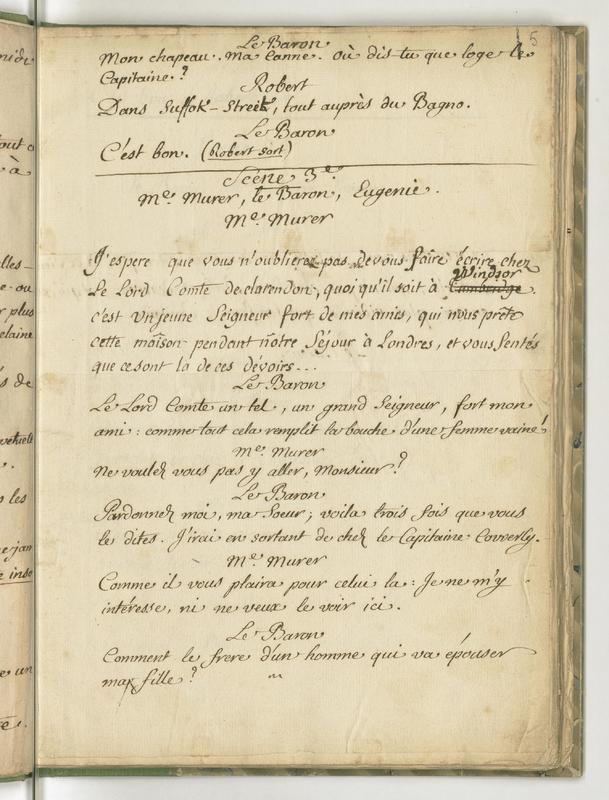 5
Le Baron
Mon chapeau. Ma Canne. Où dis-tu que loge le
Capitaine?
Robert
Dans Suffok-Street, tout auprès du Bagno.
Le Baron
C'est bon. (Robert sort)
Scène 3.e
M.e Murer, le Baron, Eugenie.
M.e Murer
J'espere que vous n'oublierez pas de vous faire écrire chez
Windsor
Le Lord Comte de clarendon, quoi qu'il soit à Cambridge.
c'est un jeune Seigneur fort de mes amis, qui nous prête
cette maison pendant nôtre Séjour à Londres, et vous Sentés
que ce sont là de ces dévoirs...
Le Baron
Le Lord Comte un tel, un grand Seigneur, fort mon
ami: comme tout cela remplit la bouche d'une femme vaine!
M.e Murer
Ne voulez vous pas y aller, Monsieur?
Le Baron
Pardonnez moi, ma Soeur; voila trois fois que vous
le dites. J'irai en sortant de chez le Capitaine Cowerly.
M.e Murer
Comme il vous plaira pour celui la: Je ne m'y
intéresse, ni ne veux le voir ici.
Le Baron
Comment le frere d'un homme qui va épouser
ma fille?
nidi
tout a
à
elles-
e-ou
r plus
elaine
s de
s les
e jan
e inso
e un